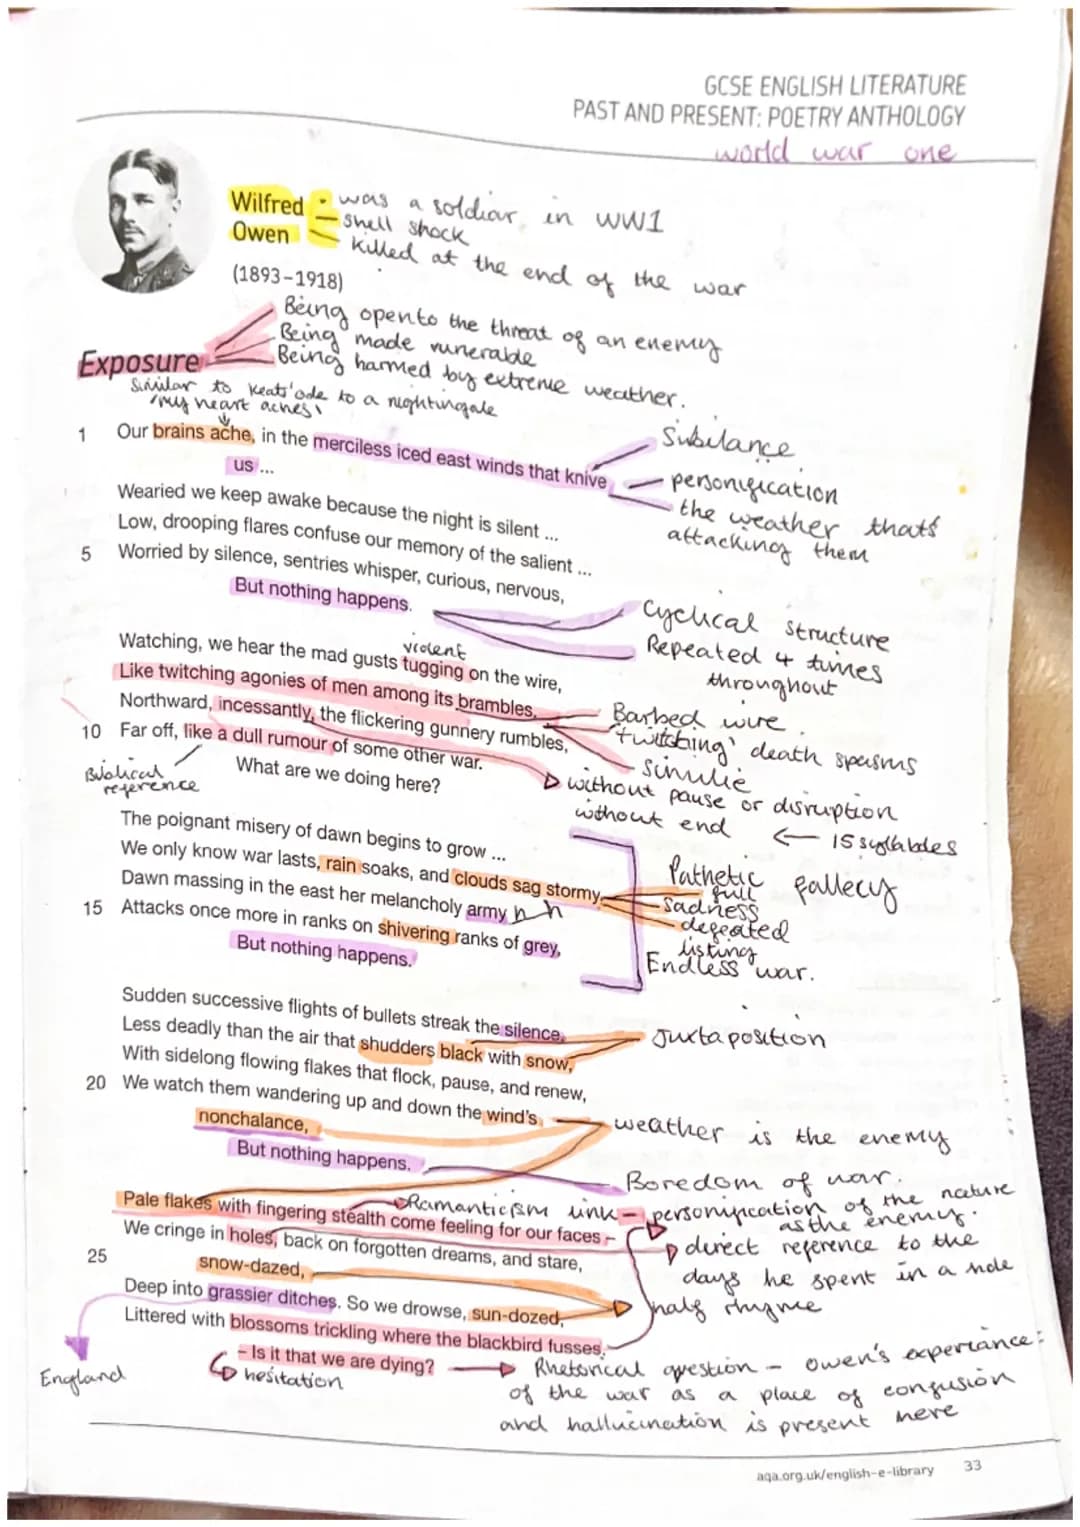 GCSE ENGLISH LITERATURE
PAST AND PRESENT: POETRY ANTHOLOGY
world war one
Wilfred
Owen
(1893–1918)
• was a soldiar, in WW1
– shell shock
killed at the end of the war
Being open to the threat of an enemy
Being made vunerable
Being harmed by extreme weather.
Exposure
Similar to Keats' ode to a nightingale
'my heart aches'
1 Our brains ache, in the merciless iced east winds that knive
us ...
Sibilance
personification
the weather thats
attacking them
Wearied we keep awake because the night is silent ...
Low, drooping flares confuse our memory of the salient ...
5 Worried by silence, sentries whisper, curious, nervous,
But nothing happens.
Cyclical structure
Repeated 4 times
throughout
violent
Watching, we hear the mad gusts tugging on the wire,
Like twitching agonies of men among its brambles.
Northward, incessantly, the flickering gunnery rumbles,
10 Far off, like a dull rumour of some other war.
What are we doing here?
Biblical
reference
Barbed wire
'twitching' death spasms
simulie
without pause or disruption
without end
← 15 syllables
The poignant misery of dawn begins to grow ...
We only know war lasts, rain soaks, and clouds sag stormy.
Dawn massing in the east her melancholy army
15 Attacks once more in ranks on shivering ranks of grey,
But nothing happens.
Pathetic fallecy
full
sadness
defeated
listing
Endless war.
Sudden successive flights of bullets streak the silence.
Less deadly than the air that shudders black with snow,
With sidelong flowing flakes that flock, pause, and renew,
20 We watch them wandering up and down the wind's
nonchalance,
But nothing happens.
Juxtaposition
weather is the enemy
Boredom of war.
Pale flakes with fingering stealth come feeling for our faces –
We cringe in holes, back on forgotten dreams, and stare,
25 snow-dazed,
Deep into grassier ditches. So we drowse, sun-dozed,
Littered with blossoms trickling where the blackbird fusses.
– Is it that we are dying?
Romanticism link – personification of the nature
as the enemy.
direct reference to the
days he spent in a hole
half rhyme
England
hesitation
Rhetorical question – Owen's experiance:
of the war as a place of confusion
and hallucination is present here
aqa.org.uk/english-e-library 33